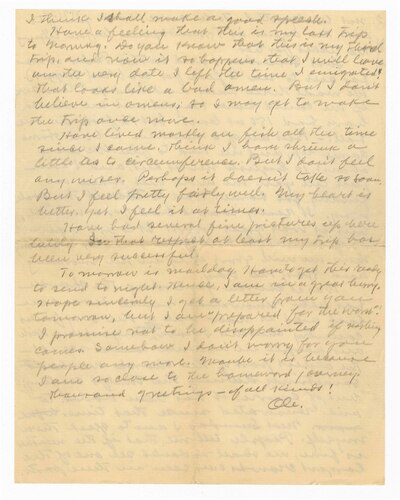 I think I shall make a good speech.
Have a feeling that this is my last trip
to Norway. Do you know that this is my third
trip, and now it so happens that I will leave
on the very date I left the time I emigrated?
that looks like a bad omen. But I don't
believe in omens, so I may get to make
the trip once more.
Have lived mostly on fish all the time
since I came. Think I have shrunk a
little as to circumference. But I don't feel
any worse. Perhaps it doesn't take so soon.
But I feel pretty fairly well. My heart is
better, yet I feel it at times.
Have had several fine pictures up here
lately. In that respect at least my trip has
been very successful.
To morrow is mailday. Have to get this ready
to send to night. Hence, I am in a great hurry.
Hope sincerely I get a letter from you
tomorrow, but I am "prepared for the worst".
I promise not to be disappointed if nothing
comes. Somehow I don't worry for you
people any more. Maybe it is because
I am so close to the homeward journey.
Thousand greetings—of all kinds!
Ole.